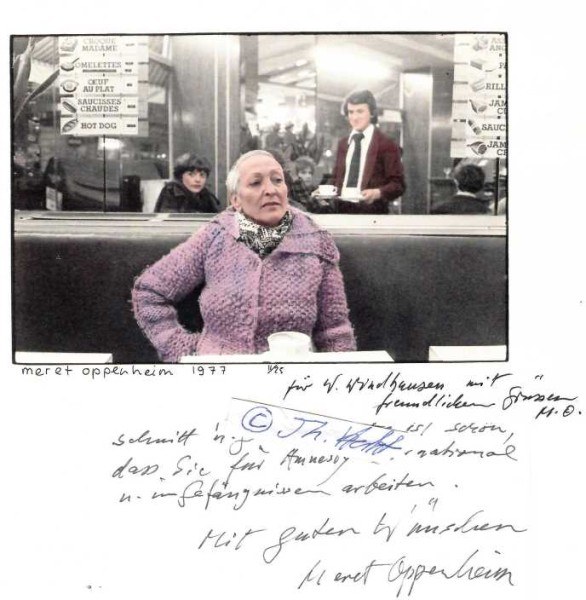 CROQUE
MADAME
OMELETTES
ŒUF
AU PLAT
SAUCISSES
CHAUDES
HOT DOG
SAUC
meret oppenheim 1977
für W. Windhausen mit
freundlichen Grüssen
M.O.
© Th.
ist schön,
dass Sie für Amnesty national
u. in Gefängnissen arbeiten.
Mit guten Wünschen
Meret Oppenheim